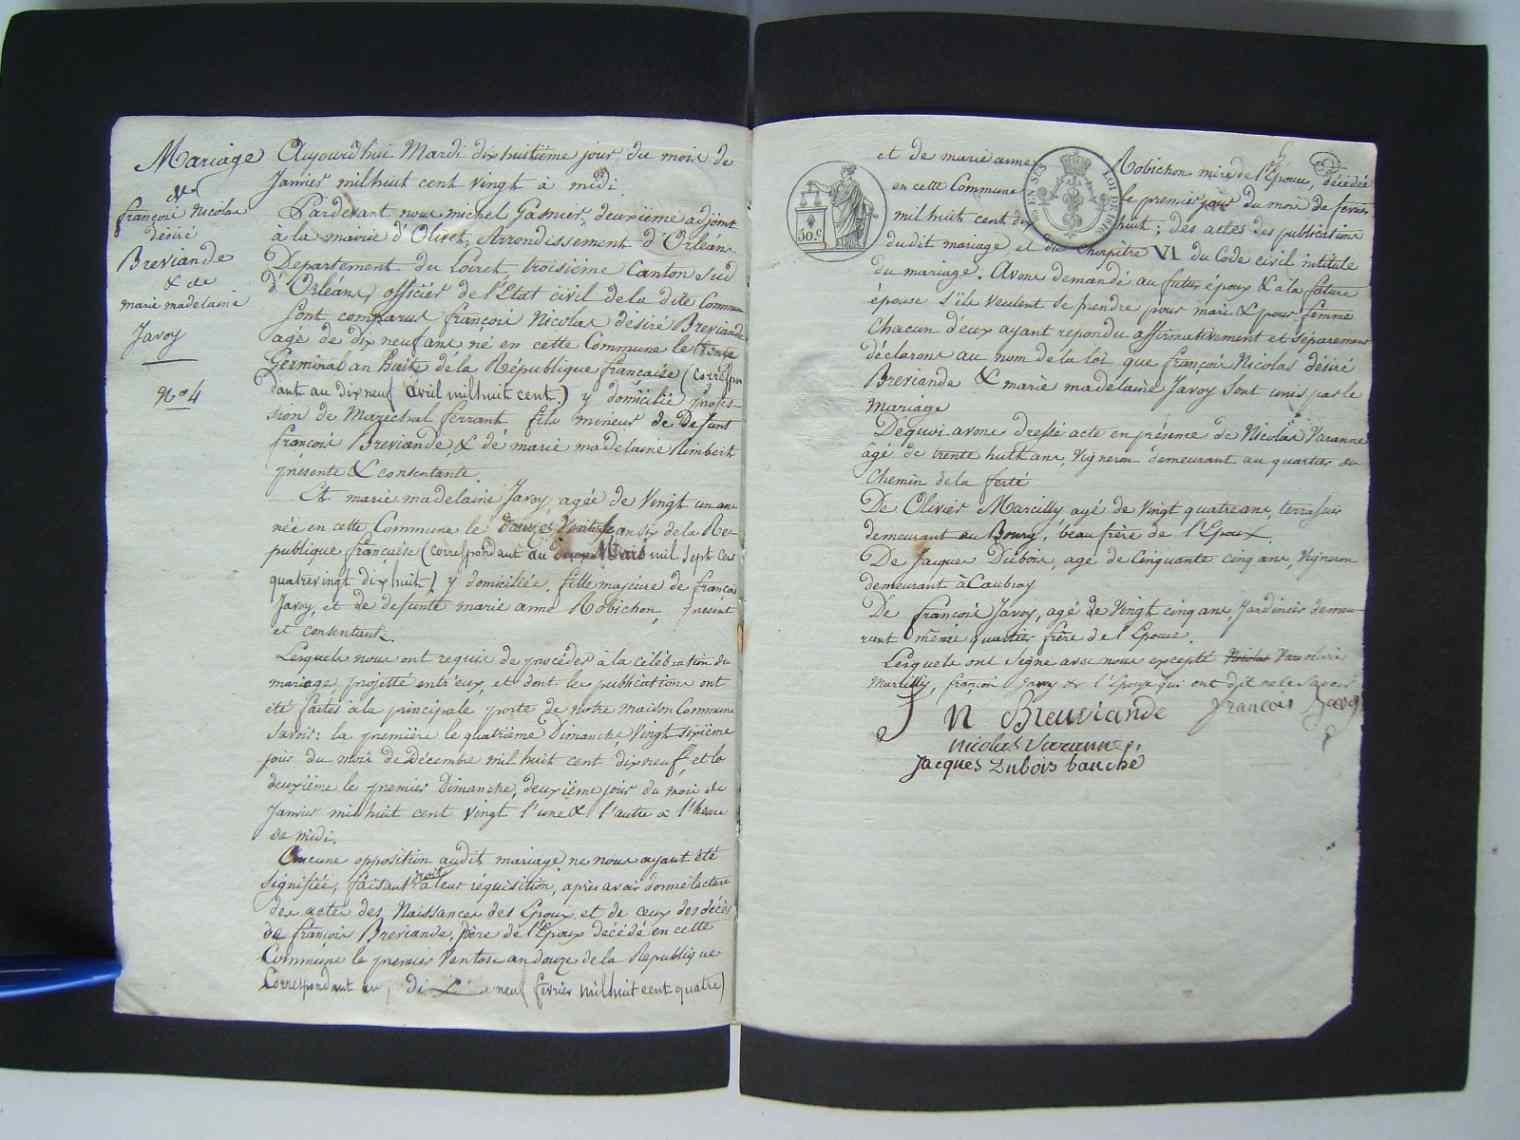 Mariage
de
françois Nicolas
désiré
Breviande
& de
marie madelaine
Javoy
No. 4
Aujourd'hui Mardi dixhuitième jour du mois de
Janvier mil huit cent vingt à midi.
Pardevant nous michel Gasnier, deuxième adjoint
à la mairie d'Olivet, Arrondissement d'Orléans
Departement du Loiret, troisième Canton Sud
d'Orléans, officier de l'Etat civil de la dite Commune
Sont comparus françois Nicolas désiré Breviande
agé de dix neuf ans né en cette Commune le trente
Germinal an huit de la République française (Correspon
dant au dix neuf avril mil huit cent.) y domicilié profes-
sion de Marechal ferrant fils mineur de Defunt
françois Breviande, & de marie madelaine Rimbert
présente & consentante.
Et marie madelaine Javoy, agée de Vingt un ans
née en cette Commune le Ventose an six de la Ré-
publique française (correspondant au Mars mil sept cent
quatrevingt dix huit) y domiciliée, fille majeure de françois
Javoy, et de defunte marie anne Robichon, present
et consentant.
Lesquels nous ont requis de procéder à la célébration du
mariage projetté entr'eux, et dont les publications ont
été faites à la principale porte de notre maison Commune
Savoir: la première le quatrième Dimanche, Vingt sixième
jour du mois de Décembre mil huit cent dix neuf, et la
deuxième le premier Dimanche, deuxième jour du mois de
Janvier mil huit cent vingt l'une & l'autre à l'heure
de midi.
Aucune opposition audit mariage ne nous ayant été
signifiée, faisant droit à leur réquisition, après avoir donné lecture
des actes des Naissances des Epoux, et de ceux des décès
de françois Breviande, père de l'Epoux décédé en cette
Commune le premier Ventose an douze de la Republique
Correspondant au, neuf fevrier mil huit cent quatre)
et de marie anne Robichon mère de l'Épouse, décédée
en cette Commune le premier jour du mois de fevrier
mil huit cent dix huit; des actes des publications
dudit mariage et du Chapitre VI du Code civil intitulé
du mariage. Avons demandé au futur époux & à la future
épouse s'ils veulent se prendre pour mari & pour femme
Chacun d'eux ayant repondu affirmativement et séparement
déclarons au nom de la loi que françois Nicolas désiré
Breviande & marie madelaine Javoy sont unis par le
mariage
De quoi avons dressé acte en présence de Nicolas Varanne
âgé de trente huit ans, Vigneron demeurant au quartier du
Chemin de la ferté
De Olivier Marcilly agé de Vingt quatre ans, terrassier
demeurant au Bourg, beau frère de l'Epoux.
De Jacques Dubois, agé de Cinquante cinq ans, Vigneron
demeurant à Caubray
De françois Javoy, agé de Vingt cinq ans, Jardinier demeu-
rant même quartier frère de l'Epouse.
Lesquels ont signé avec nous excepté Nicolas Var olivier
Marcilly, françois Javoy & l'Epouse qui ont dit ne le savoir
EN SUS
LOI DE 1816
50.c
f n Breuviande
françois Javoy
nicolas Varanne
jacques dubois bauché